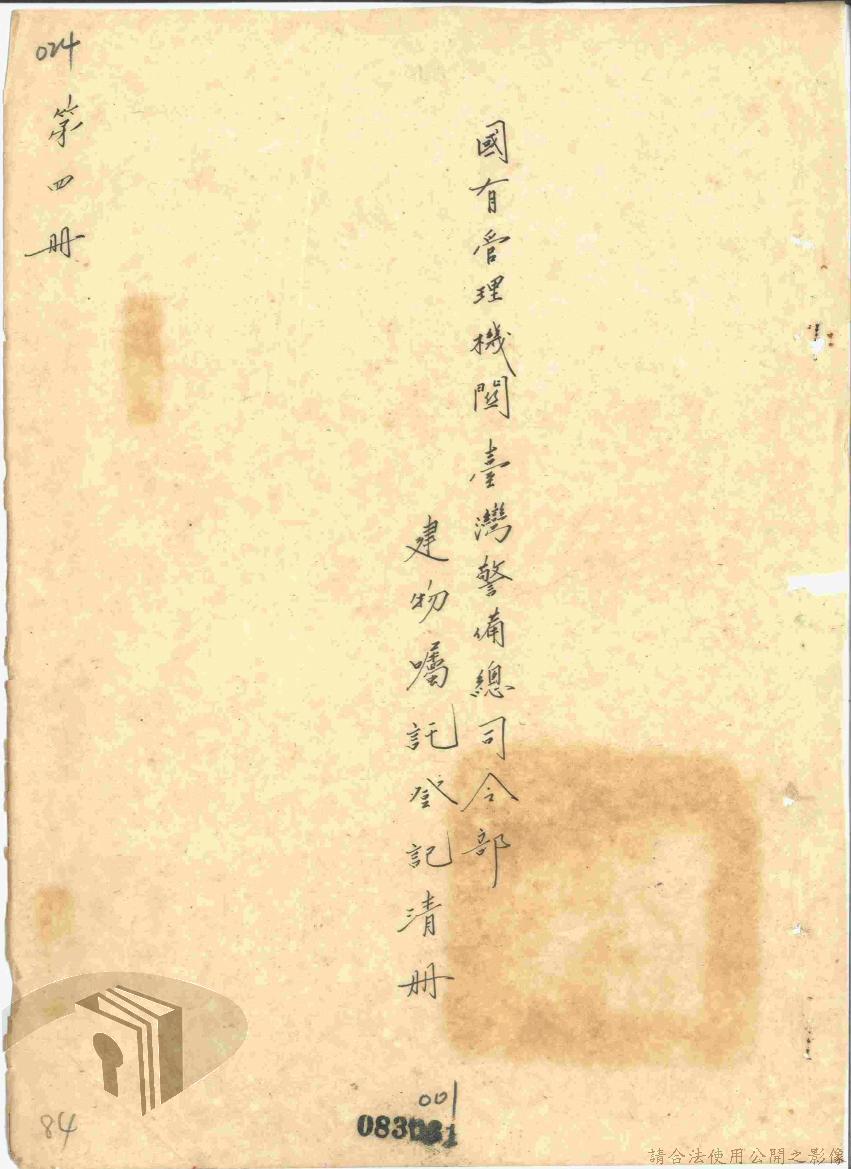 國有管理機關臺灣警備總司令部
建物囑託登記清冊
第四冊
024
001
84
請合法使用公開之影像